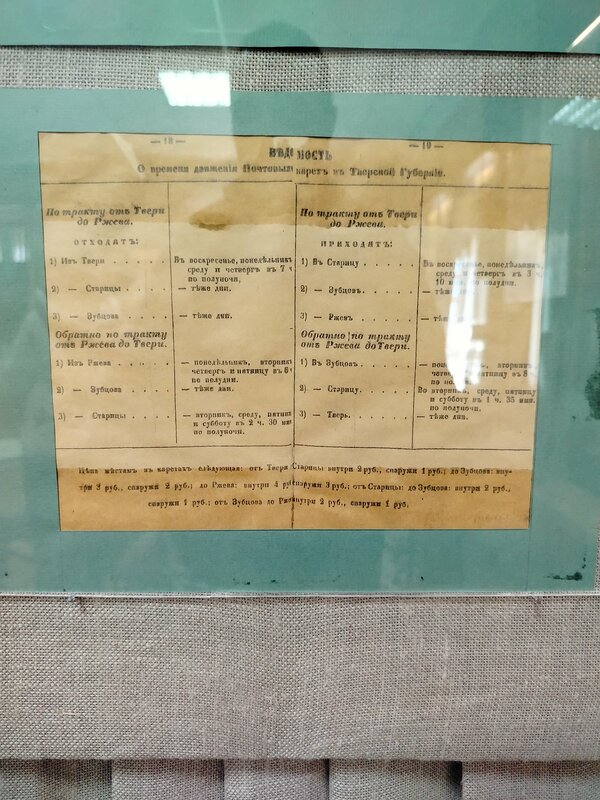 — 18 —
— 19 —
ВѢДОМОСТЬ
О времени движенія Почтовыхъ каретъ въ Тверской Губерніи.
По тракту отъ Твери
до Ржева.
ОТХОДЯТЪ:
1) Изъ Твери . . . . .
Въ воскресенье, понедѣльникъ
среду и четвергъ въ 7 ч
по полуночи,
2) — Старицы . . . .
— тѣже дни.
3) — Зубцова . . . .
— тѣже дни.
Обратно по тракту
отъ Ржева до Твери.
1) Изъ Ржева . . . .
— понедѣльникъ, вторникъ
четвергъ и пятницу въ 6
по полудни.
2) — Зубцова . . . .
— тѣже дни.
3) — Старицы . . . .
— вторникъ, среду, пятниц
и субботу въ 2 ч. 30 мин
по полуночи.
По тракту отъ Твери
до Ржева.
ПРИХОДЯТЪ:
1) Въ Старицу . . . .
Въ воскресенье, понедѣльникъ,
среду и четвергъ въ 3 ч.
10 мин. по полудни.
2) — Зубцовъ. . . . .
— тѣже
3) — Ржевъ . . . . .
Обратно по тракту
отъ Ржева до Твери.
1) Въ Зубцовъ. . . . .
вторникъ,
пятницу въ 8
по
2) — Старицу. . . . .
Во вторникъ, среду, пятницу
и субботу въ 1 ч. 35 мин.
по полуночи.
3) — Тверь. . . . . .
— тѣже дни.
Цѣна мѣстамъ въ каретахъ слѣдующая: отъ Твери Старицы внутри 2 руб., снаружи 1 руб.; до Зубцова: вну-
три 3 руб., снаружи 2 руб.; до Ржева: внутри 4 ру снаружи 3 руб.; отъ Старицы: до Зубцова: внутри 2 руб.,
снаружи 1 руб.; отъ Зубцова до Рже внутри 2 руб., снаружи 1 руб.